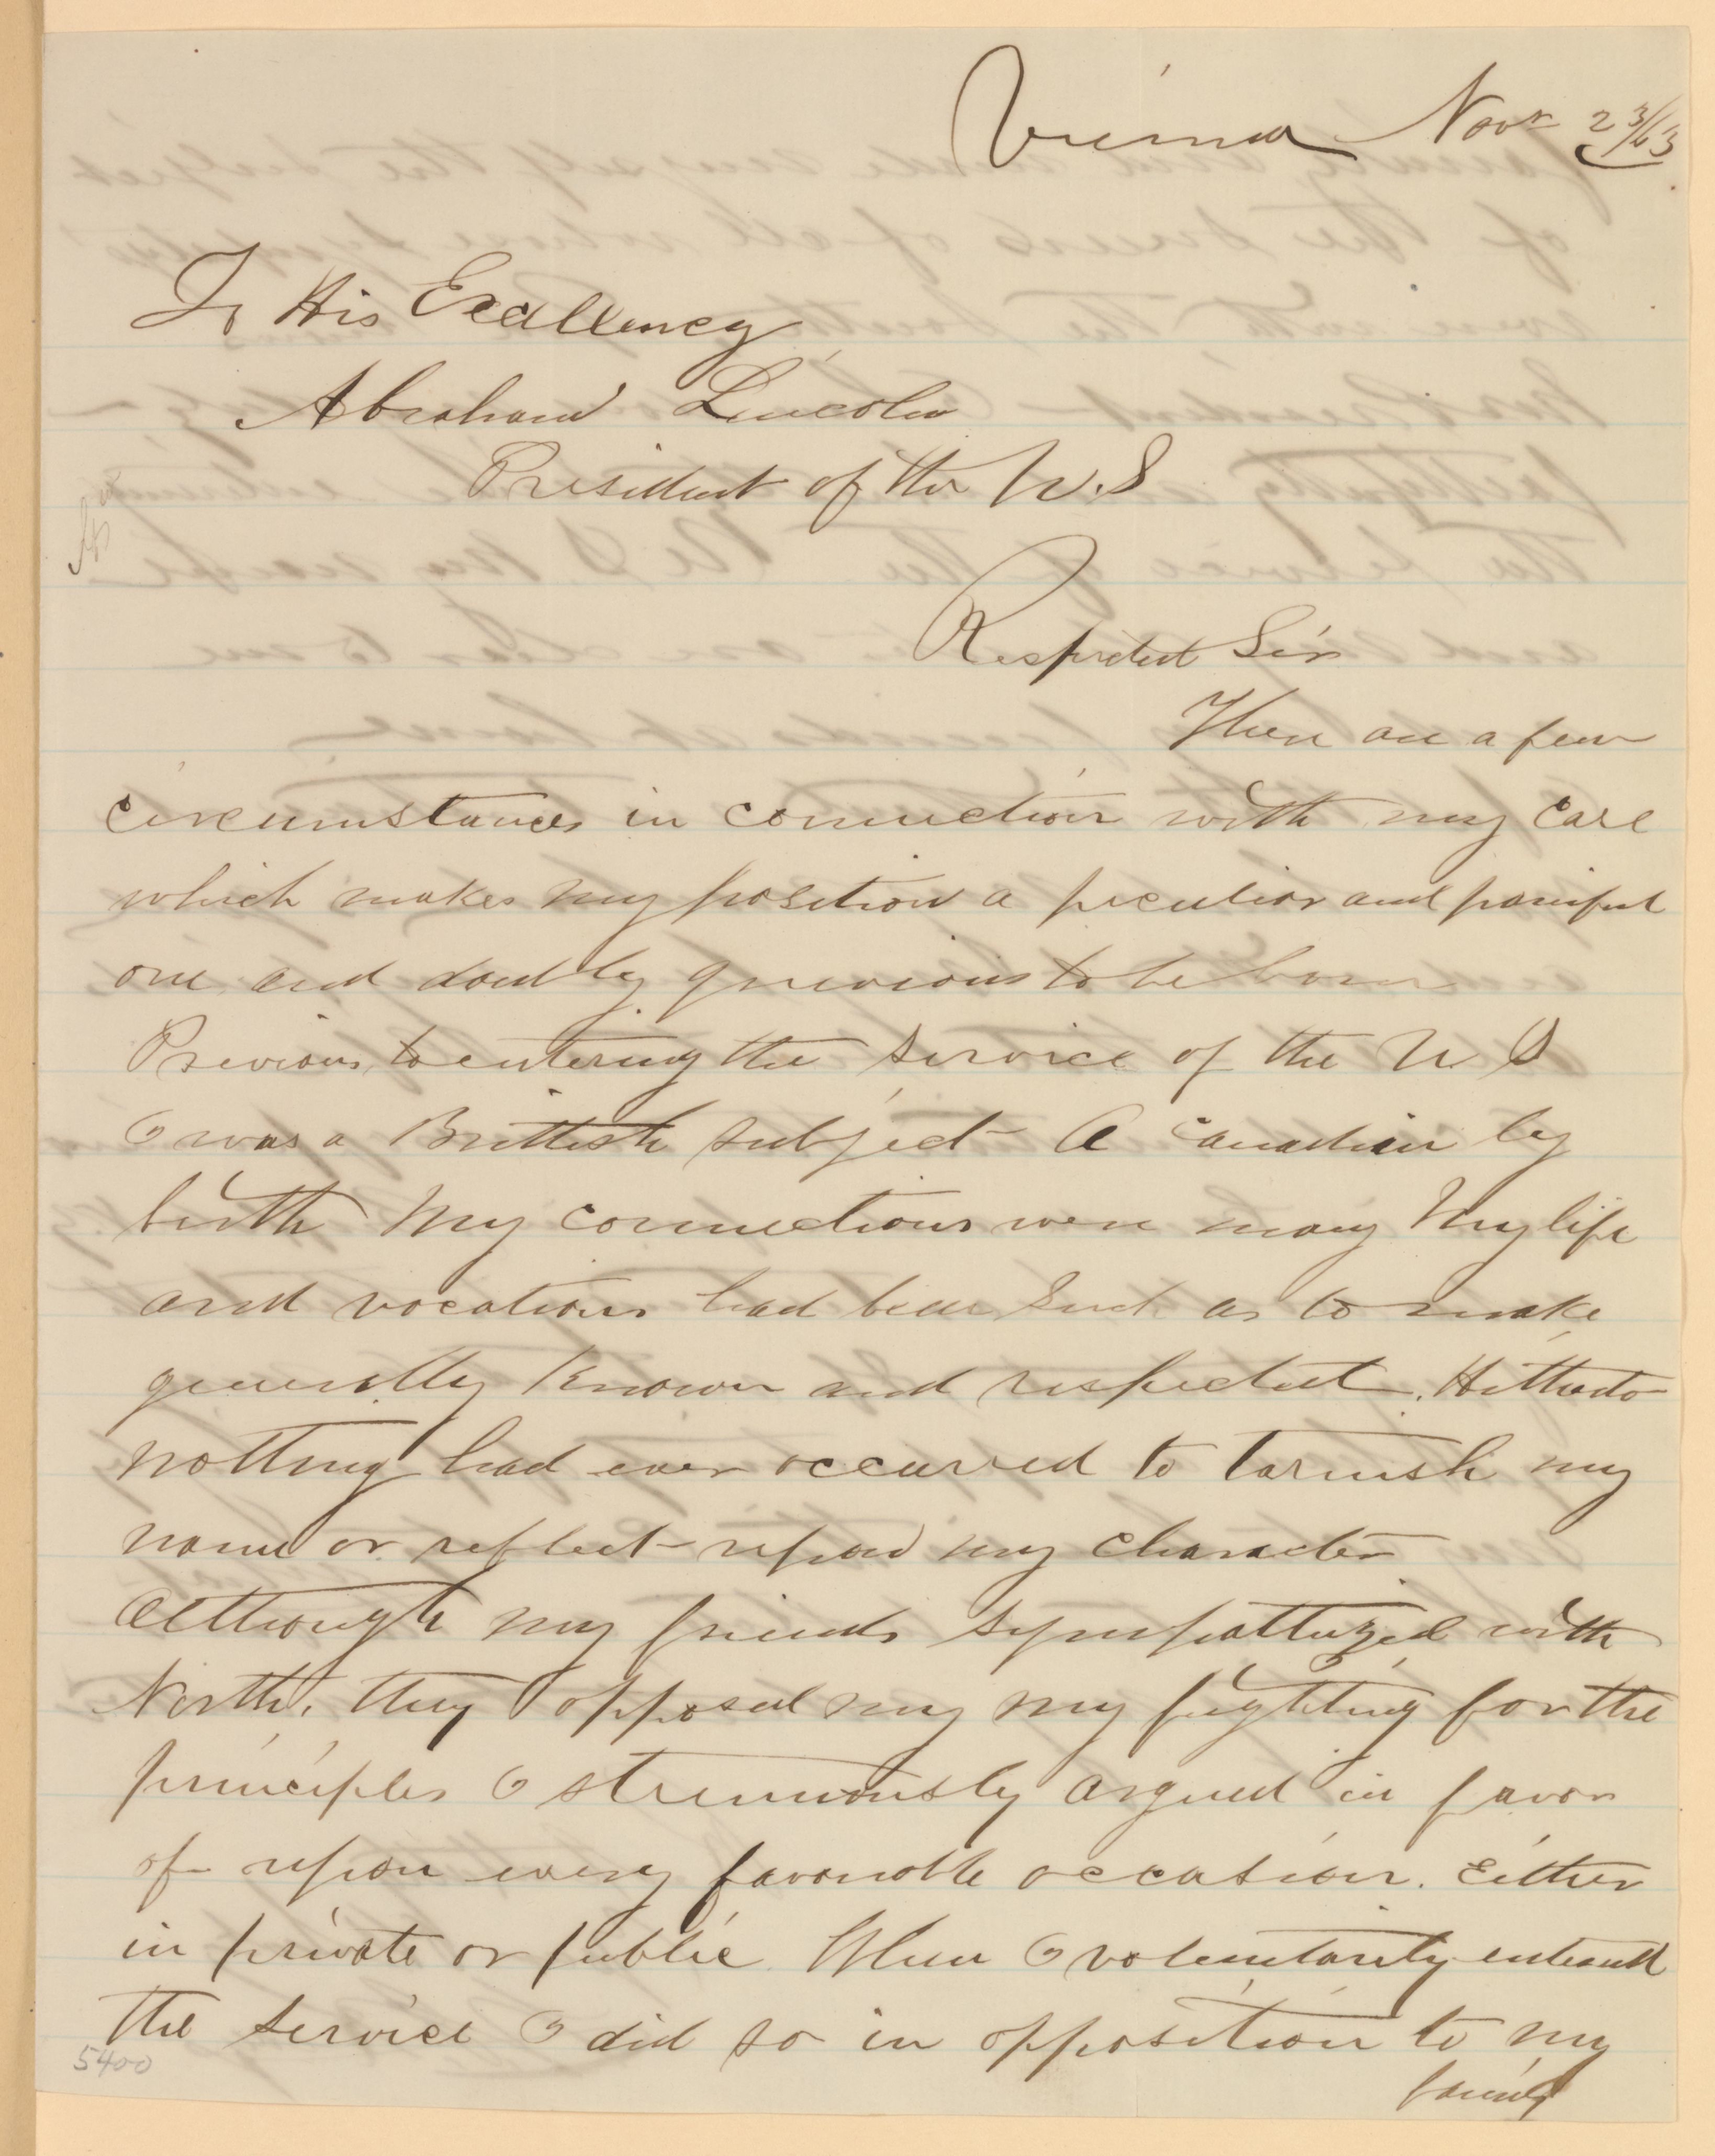 Vienna Novr 23/63
To His Excellency
Abraham Lincoln
President of the U.S
Respected Sir
There are a few
circumstances in connection with my case
which makes my position a peculiar and painful
one and doubly grievious to be born
Previous to entering the service of the U. S
I was a Brittish subject A Canadian by
birth My connections were many My life
and vocations had been such as to make
generally known and respected. Hitherto
nothing had ever occurred to tarnish my
name or reflect upon my character
Although my friends sympathized with
North, they opposed my my fighting for the
principles I strenuously argued in favor
of upon every favorable occasion. Either
in private or public When I voluntarily entered
the service I did so in opposition to my
family
5400